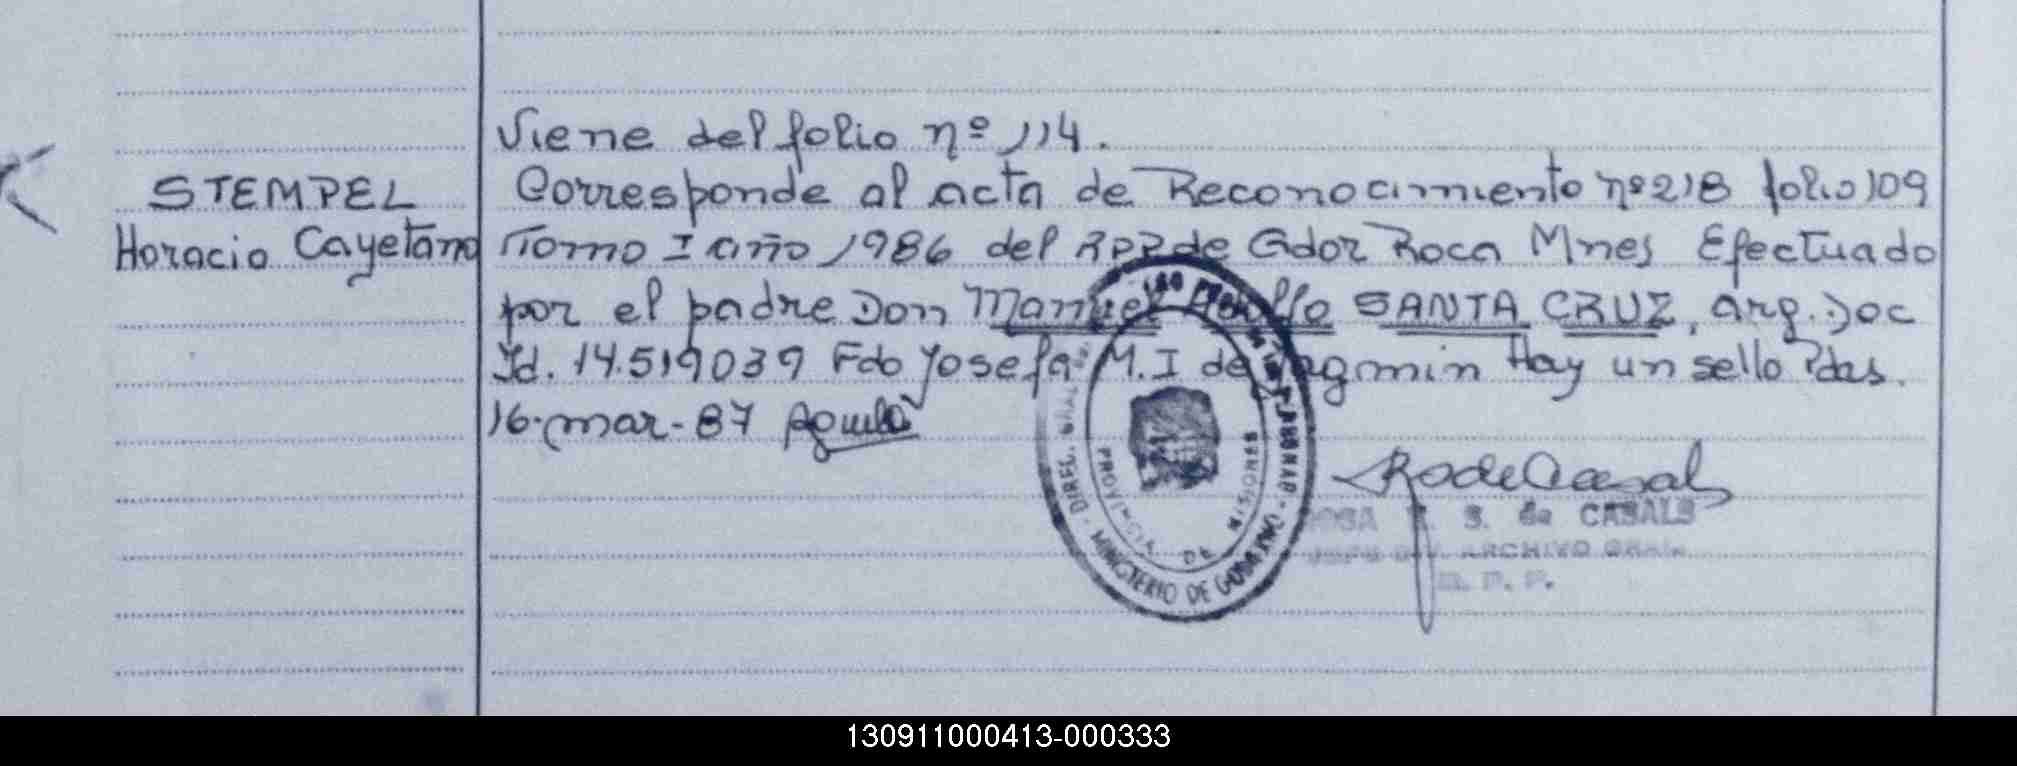 Viene del folio nº 114.
STEMPEL Corresponde al acta de Reconocimiento nº 218 folio 109
Horacio Cayetano Tomo I año 1986 del RPP de Gdor Roca Mnes Efectuado
por el padre Don Manuel SANTA CRUZ, arg. Doc
Id. 14.519039 Fdo Josefa M. I de Hay un sello Pdas.
16-mar-87
DIREC. GRAL. MINISTERIO DE GOBIERNO
PROVINCIA DE MISIONES
ROSA S. de CASALS
JEFE DIV. ARCHIVO GRAL.
R. P. P.
130911000413-000333